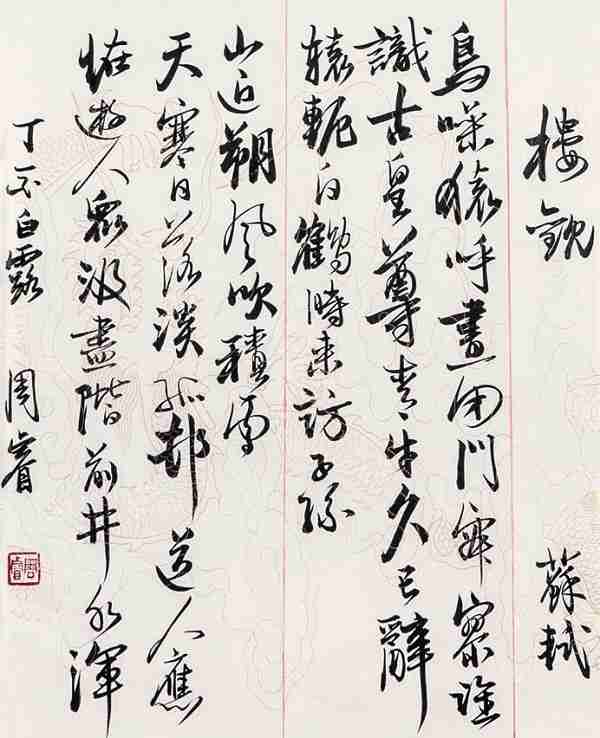 樓觀 蘇軾
鳥噪猿呼晝閉門寂寥誰
識古皇尊青牛久已辭
轅軛白鶴時來訪子孫
山近朔風吹積雪
天寒日落淡孤邨道人應
恠遊人衆汲盡階前井水渾
丁酉白露 周睿
周睿